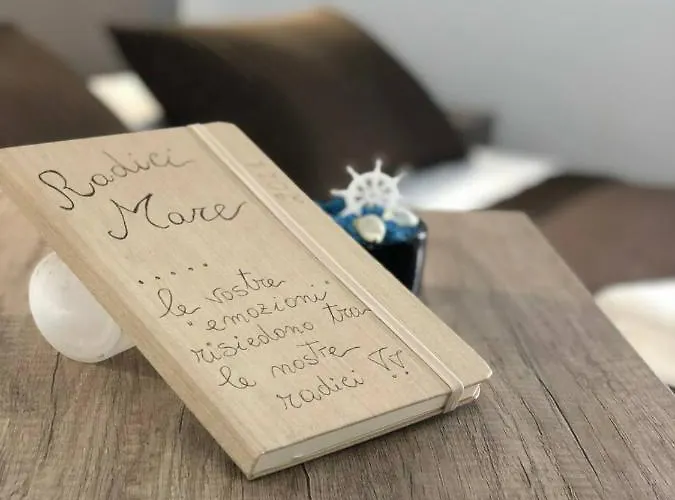 Radici
Mare
.....
le vostre
"emozioni"
risiedono tra
le nostre
radici !!